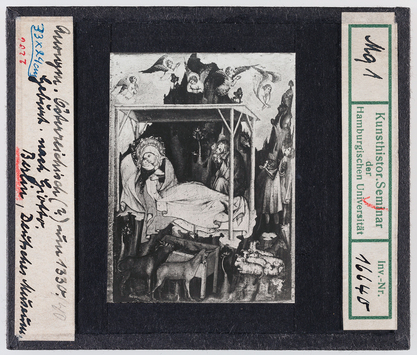 Anonym. Österreichisch (?) um 1330.
Geburt
Berlin, Deutsches Museum.
33 x 24 cm
Mg 1
Kunsthistor. Seminar
der
Hamburgischen Universität
Inv.-Nr.
16640